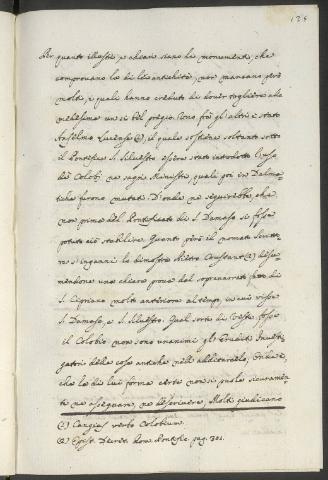 125
Per quanto illustri, e chiari siano li monumenti, che
comprovano la di lei antichità, non mancano però
molti, i quali hanno creduto di dover togliere alla
medesima un sì bel pregio. Uno fra gli altri è stato
Anselmo Lucense (1), il quale sostiene soltanto sotto
il Pontefice S. Silvestro essere stato introdotto l'uso
dei Colobj ne sagri Ministri, quali poi in Dalma
tiche furono mutati. D'onde ne seguirebbe, che
non prima del Pontificato di S. Damaso si fosse
potuto ciò stabilire. Quanto però il nomato Scritto
re s'inganni lo dimostra Pietro Coustant (2) desu
mendone una chiara prova dal sopranarrato fatto di
S. Cipriano molto anteriore al tempo, in cui visse
S. Damaso, e S. Silvestro. Qual sorte di Veste fosse
il Colobio non sono unanimi gli Eruditi Investi
gatori delle cose antiche nell' additarcelo,
che la di lui forma certa non si puole sicuramen
te ne assegnare, ne descrivere. Molti giudicano
(1) Cangius verbo Colobium.
(2) Epist. Decret. Rom. Pontific. pag. 301.